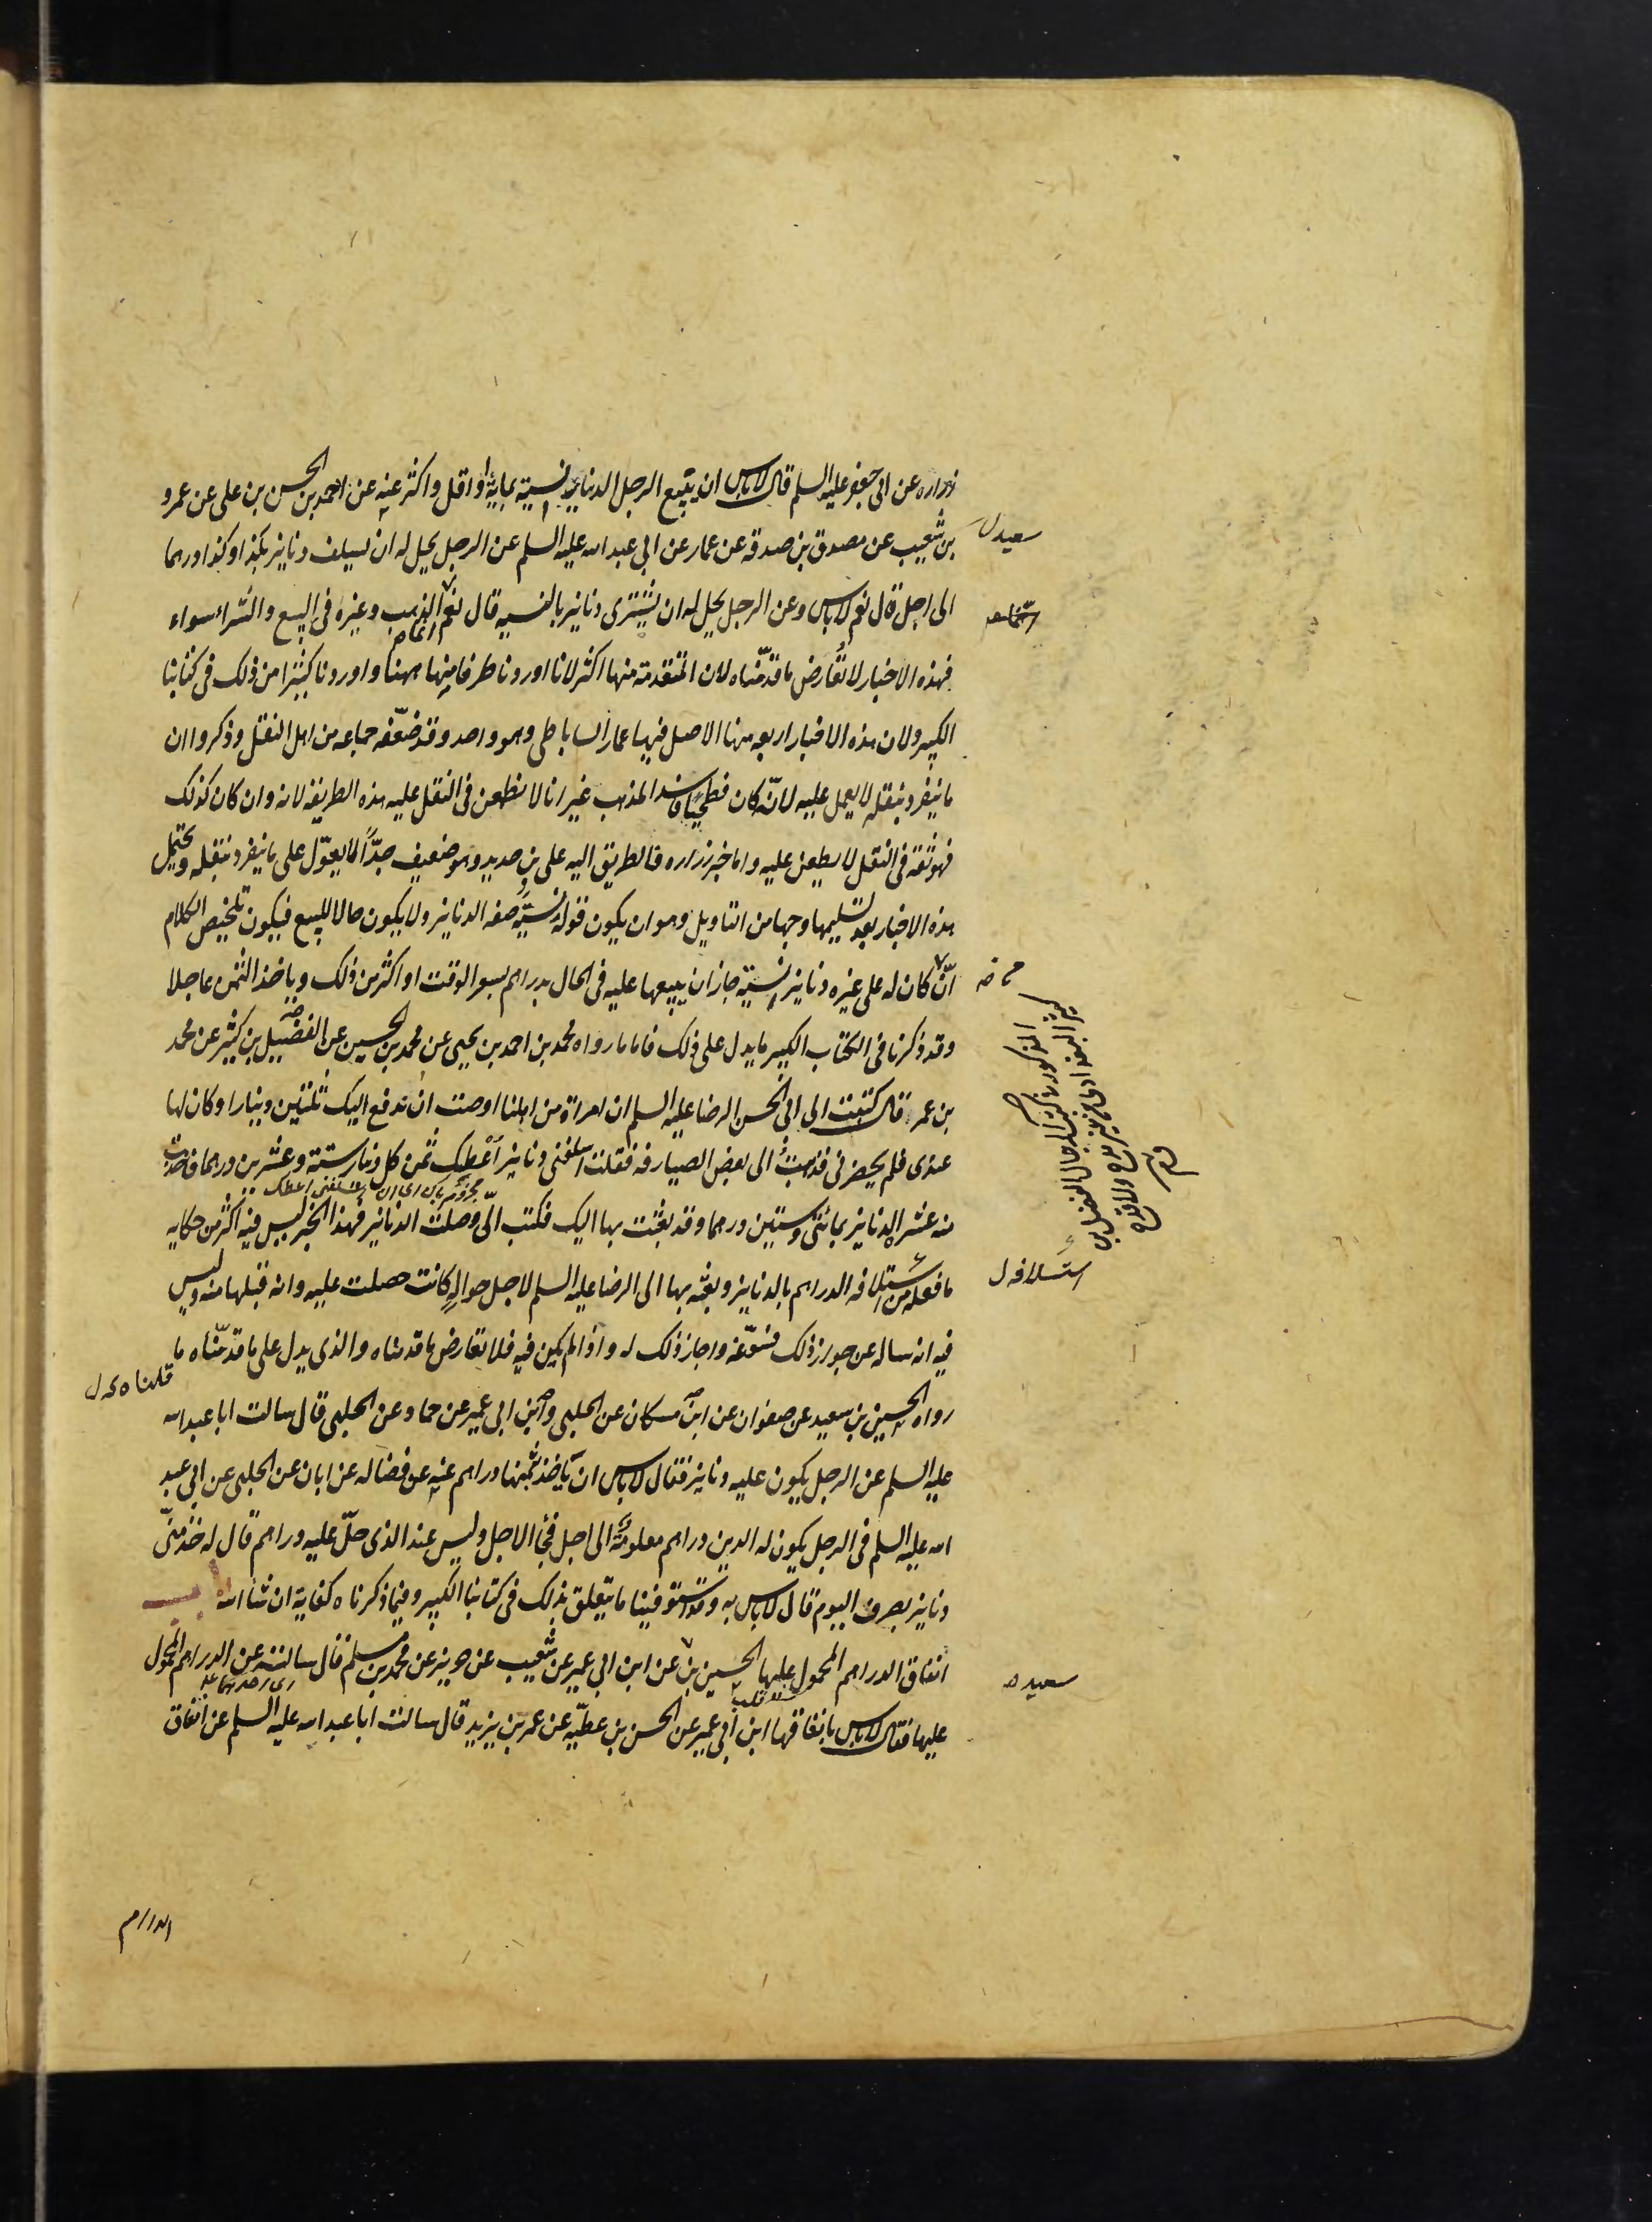 زراره عن ابى جعفر عليه السلم قال لاباس ان يبيع الرجل الدنانير نسيئة بماية او اقل واكثر عنه عن احمد بن الحسن بن على عن عمرو
بن سعيد عن مصدق بن صدقه عن عمار عن ابى عبد الله عليه السلم عن الرجل يحل له ان يسلف دنانير بكذا وكذا درهما
الى اجل قال نعم لاباس وعن الرجل يحل له ان يشترى دنانير بالنسيه قال نعم انما الذهب وغيره فى البيع والشراء سواء
فهذه الاخبار لا تعارض ما قدمناه لان المتقدمة منها اكثر لانا اوردنا طرفا منها ههنا واوردنا كثيرا من ذلك فى كتابنا
الكبير ولان هذه الاخبار اربعه منها الاصل فيها عمار الساباطى وهو واحد وقد ضعّفه جماعه من اهل النقل وذكروا ان
ما ينفرد بنقله لا يعمل عليه لانّه كان فطحيّا فاسد المذهب غير انا لا نطعن فى النقل عليه بهذه الطريقة لانه وان كان كذلك
فهو ثقة فى النقل لا يطعن عليه واما خبر زراره فالطريق اليه على بن حديد وهو ضعيف جدًّا لا يعوّل على ما ينفرد بنقله ويحتمل
هذه الاخبار بعد تسليمها وجها من التاويل وهو ان يكون قوله نسيئة صفه الدنانير ولا يكون حالا للبيع فيكون تلخيص الكلام
انّ كان له على غيره دنانير نسيئة جاز ان يبيعها عليه فى الحال بدراهم بسعر الوقت او اكثر من ذلك وياخذ الثمن عاجلا
وقد ذكرنا فى الكتاب الكبير ما يدل على ذلك فاما ما رواه محمد بن احمد بن يحيى عن محمد بن الحسين عن الفضيل بن كثير عن محمد
بن عمر قال كتبت الى ابى الحسن الرضا عليه السلم ان امراة من اهلنا اوصت ان ندفع اليك ثلثين دينارا وكان لها
عندى فلم يحضرنى فذهبت الى بعض الصيارفه فقلت اسلفنى دنانير اعطيك ثمن كل دينار ستة وعشرين درهما فاخذت
منه عشر الدنانير بمائتى وستين درهما وقد بعثت بها اليك فكتب الىّ وصلت الدنانير فهذا الخبر ليس فيه اكثر من حكايه
ما فعله من استلافه الدراهم بالدنانير وبعثه بها الى الرضا عليه السلم لاجل حواله كانت حصلت عليه وانه قبلها منه وليس
فيه انه ساله عن جواز ذلك فسوّغه واجاز ذلك له واذا لم يكن فيه فلا تعارض ما قدمناه والذى يدل على ما قدمّناه ما
رواه الحسين بن سعيد عن صفوان عن ابن مسكان عن الحلبى وابن ابى عمير عن حماد عن الحلبى قال سالت ابا عبد الله
عليه السلم عن الرجل يكون عليه دنانير فقال لاباس ان ياخذ ثمنها دراهم عنه عن فضاله عن ابان عن الحلبى عن ابى عبد
الله عليه السلم فى الرجل يكون له الدين دراهم معلومة الى اجل فجاء الاجل وليس عند الذى حلّ عليه دراهم قال له خذ منّى
دنانير بصرف اليوم قال لاباس به وقد استوفينا ما يتعلق بذلك فى كتابنا الكبير وفيما ذكرناه كفاية ان شاء الله
انفاق الدراهم المحمول عليها الحسين بن عن ابن ابى عمير عن شعيب عن حريز عن محمد بن مسلم قال سالته عن الدراهم المحمول
عليها فقال لاباس بانفاقها ابن ابى عمير عن الحسن بن عطيّه عن عمر بن يزيد قال سالت ابا عبد الله عليه السلم عن انفاق
سعيد ل
استلافه ل
قلناه
سعيد
الدراهم